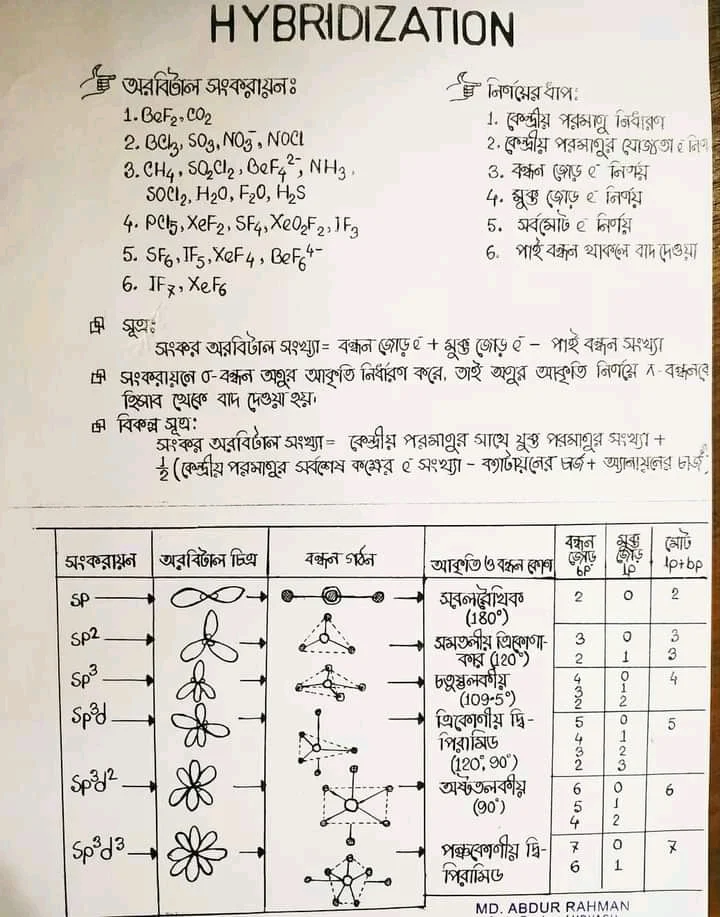 HYBRIDIZATION
অরবিটাল সংকরায়নঃ
1. BeF₂, CO₂
2. BCl₃, SO₃, NO₃⁻, NOCl
3. CH₄, SO₂Cl₂, BeF₄²⁻, NH₃,
SOCl₂, H₂O, F₂O, H₂S
4. PCl₅, XeF₂, SF₄, XeO₂F₂, IF₃
5. SF₆, IF₅, XeF₄, BeF₆⁴⁻
6. IF₇, XeF₆
নির্ণয়ের ধাপ:
1. কেন্দ্রীয় পরমাণু নির্ধারণ
2. কেন্দ্রীয় পরমাণুর যোজ্যতা e
3. বন্ধন জোড় e⁻ নির্ণয়
4. মুক্ত জোড় e⁻ নির্ণয়
5. সর্বমোট e⁻ নির্ণয়
6. পাই বন্ধন থাকলে বাদ দেওয়া
সূত্রঃ
সংকর অরবিটাল সংখ্যা = বন্ধন জোড় e⁻ + মুক্ত জোড় e⁻ - পাই বন্ধন সংখ্যা
সংকরায়নে σ-বন্ধন অণুর আকৃতি নির্ধারণ করে, তাই অণুর আকৃতি নির্ণয়ে π-বন্ধনকে
হিসাব থেকে বাদ দেওয়া হয়।
বিকল্প সূত্র:
সংকর অরবিটাল সংখ্যা = কেন্দ্রীয় পরমাণুর সাথে যুক্ত পরমাণুর সংখ্যা +
½ (কেন্দ্রীয় পরমাণুর সর্বশেষ কক্ষের e⁻ সংখ্যা - ক্যাটায়নের চার্জ + অ্যানায়নের চার্জ)
সংকরায়ন অরবিটাল চিত্র বন্ধন গঠন আকৃতি ও বন্ধন কোণ বন্ধন জোড় bp মুক্ত জোড় lp মোট lp+bp
sp সরলরৈখিক (180°) 2 0 2
sp² সমতলীয় ত্রিকোণা- 3 0 3
কার (120°) 2 1 3
sp³ চতুস্তলকীয় 4 0 4
(109.5°) 3 1
2 2
sp³d ত্রিকোণীয় দ্বি- 5 0 5
পিরামিড 4 1
(120°, 90°) 3 2
2 3
sp³d² অষ্টতলকীয় 6 0 6
(90°) 5 1
4 2
sp³d³ পঞ্চকোণীয় দ্বি- 7 0 7
পিরামিড 6 1
MD. ABDUR RAHMAN